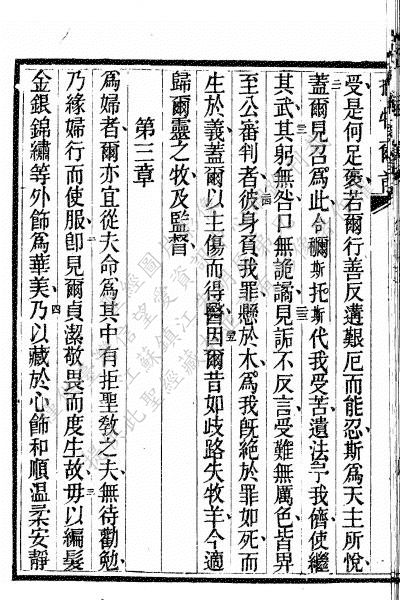 受是何足襃若爾行善反遘艱厄而能忍斯爲天主所悅
蓋爾見召爲此合斯托斯代我受苦遺法于我儕使繼
其武其躬無咎口無詭譎見詬不反言受難無厲色皆畀
至公審判者彼身負我罪懸於木爲我旣絕於罪如死而
生於義蓋爾以主傷而得醫因爾昔如歧路失牧羊今適
歸爾靈之牧及監督
第三章
爲婦者爾亦宜從夫命爲其中有拒聖敎之夫無待勸勉
乃緣婦行而使服卽見爾貞潔敬畏而度生故毋以編髮
金銀錦繡等外飾爲華美乃以藏於心飾和順溫柔安靜